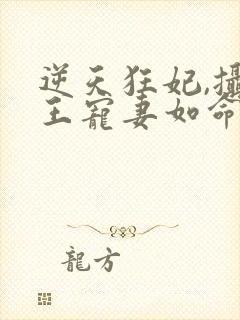 逆天狂妃,攝
王寵妻如命
龍方